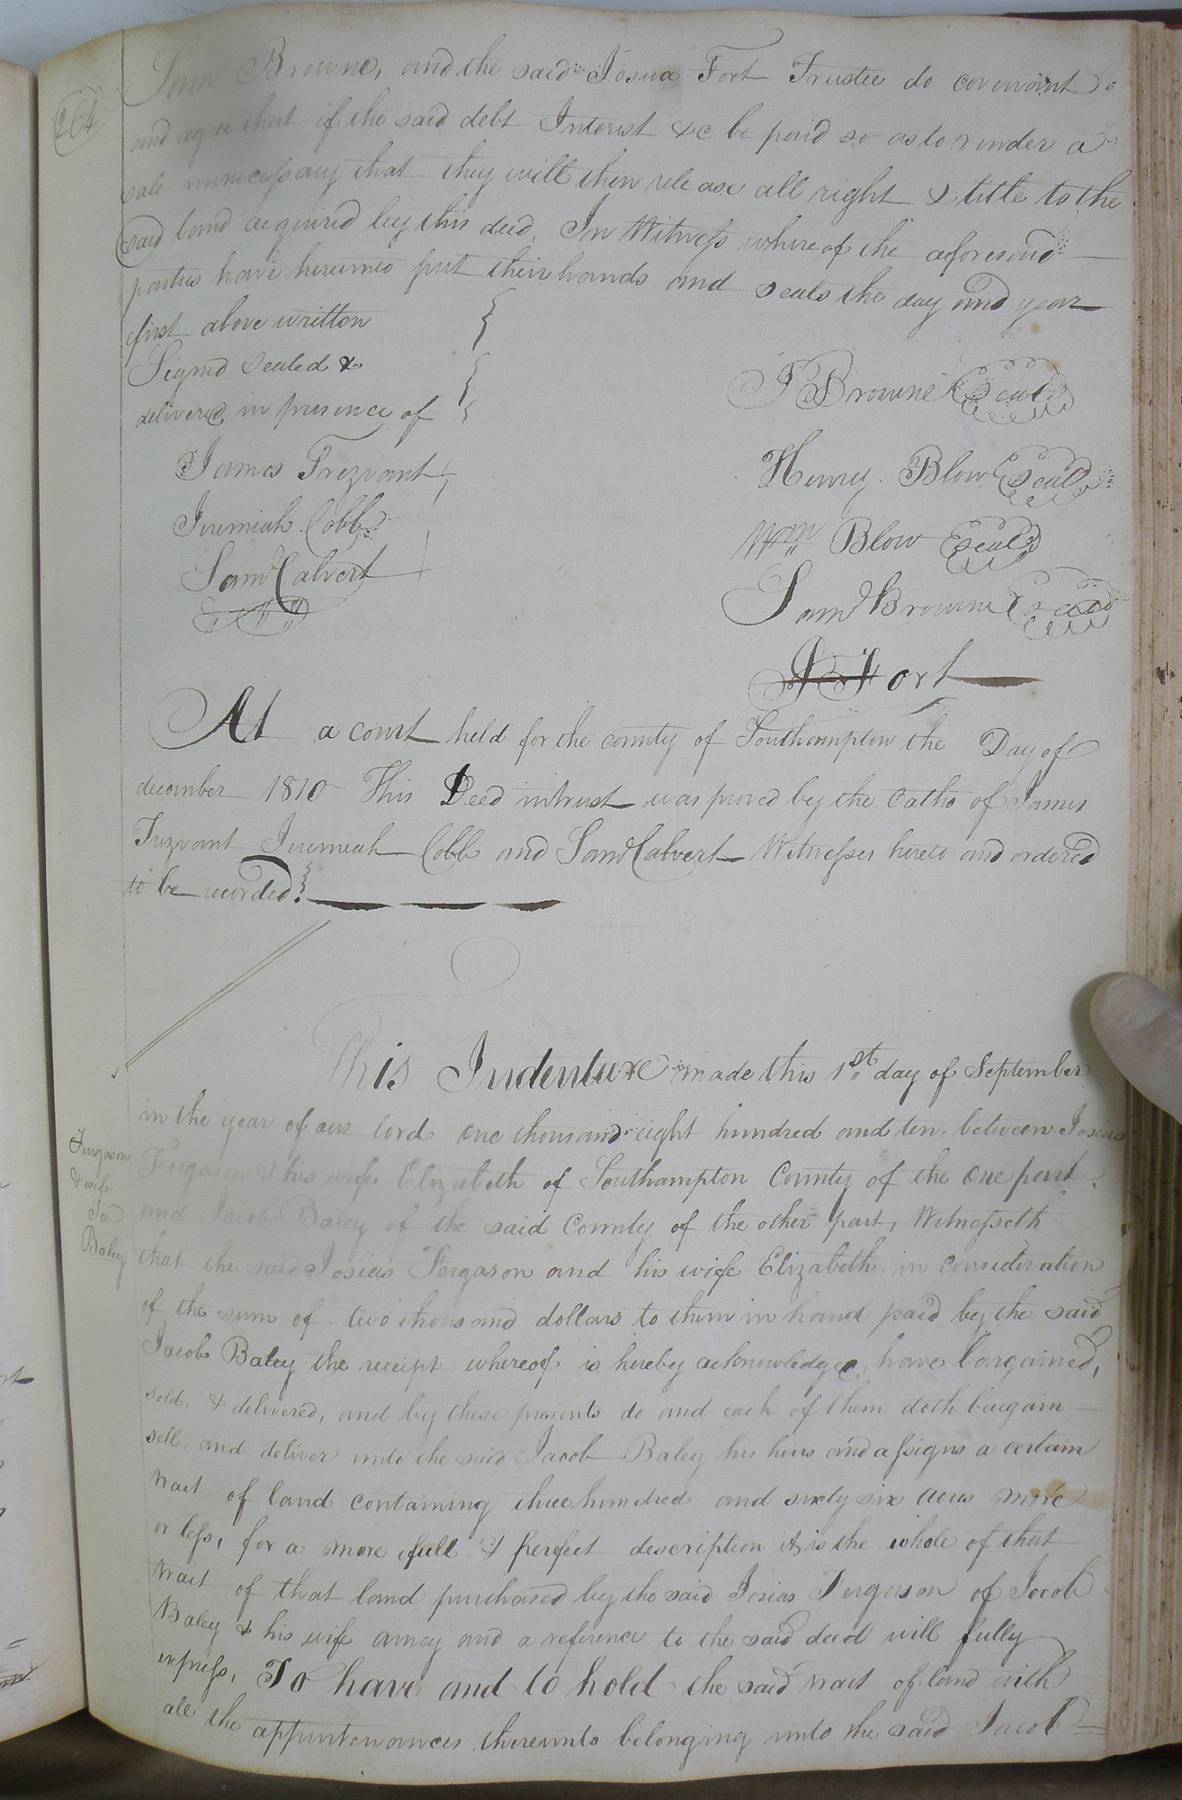 264
Sam Browne, and the said Josua Fort Trustee do covenant
and agree that if the said debt Interest &c be paid so as to render a
sale unnecessary that they will then release all right & title to the
said land acquired by this deed. In Witness whereof the aforesaid
parties have hereunto put their hands and seals the day and year
first above written
Signed sealed &
delivered in presence of
J Browne Seal
James Trezvant
Henry Blow Seal
Jeremiah Cobb
Wm Blow Seal
Saml Calvert
Saml Browne Seal
J Fort
At a court held for the county of Southampton the Day of
december 1810 This Deed intrust was proved by the Oaths of James
Trezvant Jeremiah Cobb and Saml Calvert Witnesses hereto and ordered
to be recorded.
This Indenture made this 1st day of September
in the year of our lord one thousand eight hundred and ten between Josias
Fergason & his wife Elizabeth of Southampton County of the One part
and Jacob Baley of the said County of the other part, Witnesseth
Fergason
& wife
To
Baley
that the said Josias Fergason and his wife Elizabeth in consideration
of the sum of two thousand dollars to them in hand paid by the said
Jacob Baley the receipt whereof is hereby acknowledge, have bargained,
sold, & delivered, and by these presents do and each of them doth bargain
sell, and deliver unto the said Jacob Baley his heirs and assigns a certain
tract of land containing three hundred and sixty six acres more
or less, for a more full & perfect description it is the whole of that
tract of that land purchased by the said Josias Fergerson of Jacob
Baley & his wife amey and a reference to the said deed will fully
express, To have and to hold the said tract of land with
all the appurtenances thereunto belonging unto the said Jacob